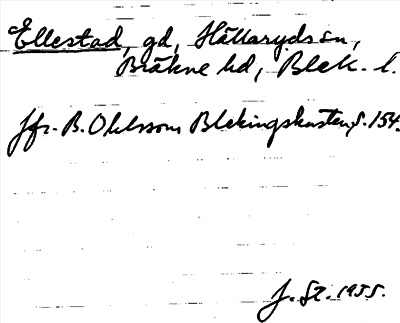 Ellestad, gd, Hällaryds sn,
Bräkne hd, Blek. l.
Jfr. B. Ohlsson Blekingskusten, s. 154.
J. St. 1955.